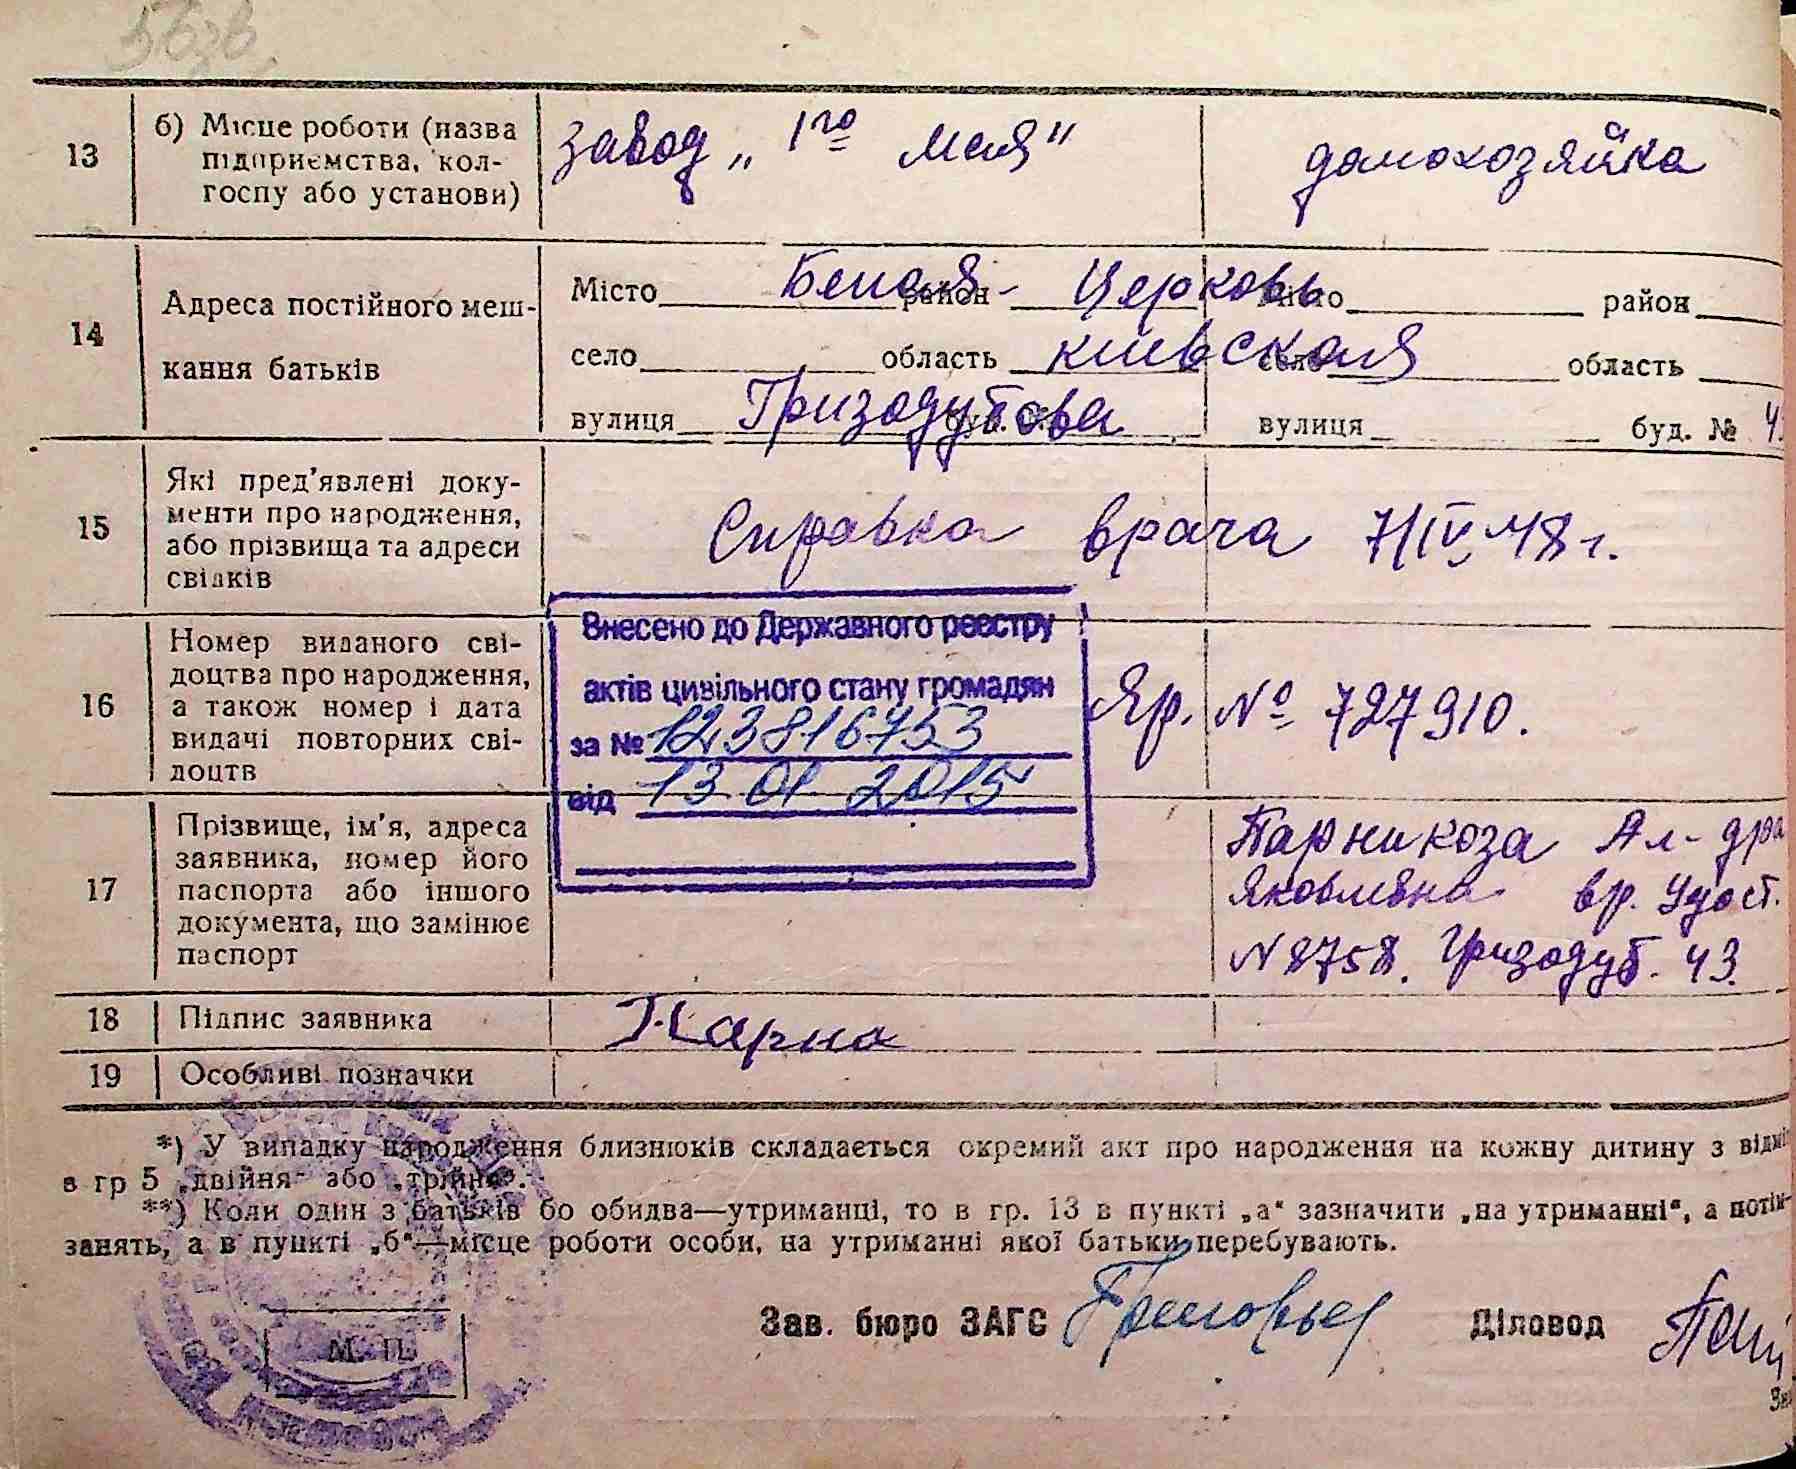 13
б) Місце роботи (назва
підприємства, кол-
госпу або установи)
завод „1го мая"
домохозяйка
14
Адреса постійного меш-
кання батьків
Місто Белая- район Церковь Місто район
село область киевская село область
вулиця Гризодубова буд. № вулиця буд. № 43
15
Які пред'явлені доку-
менти про народження,
або прізвища та адреси
свідків
Справка врача 7/IV 48 г.
16
Номер виданого сві-
доцтва про народження,
а також номер і дата
видачі повторних сві-
доцтв
Внесено до Державного реестру
актів цивільного стану громадян
за № 123816753
від 13 01 2015
Яр. № 727910.
17
Прізвище, ім'я, адреса
заявника, номер його
паспорта або іншого
документа, що замінює
паспорт
Парникоза Ал-дра
Яковлевна вр. Удост.
№ 8758. Гризодуб. 43.
18
Підпис заявника
Парни
19
Особливі позначки
*) У випадку народження близнюків складається окремий акт про народження на кожну дитину з
в гр 5 „двійня" або „трійня".
**) Коли один з батьків бо обидва—утриманці, то в гр. 13 в пункті „а" зазначити „на утриманні", а потім-
занять, а в пункті „б"—місце роботи особи, на утриманні якої батьки перебувають.
Зав. бюро ЗАГС Діловод
М. П.